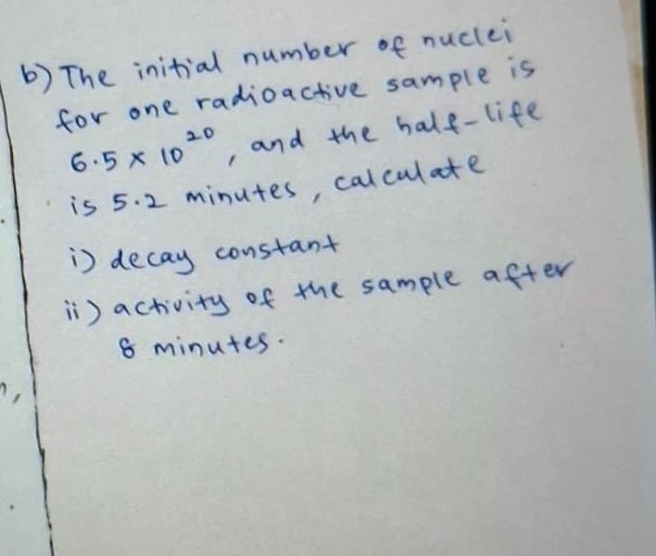 b) The initial number of nuclei
for one radioactive sample is
6.5 x 10²⁰, and the half-life
is 5.2 minutes, calculate
i) decay constant
ii) activity of the sample after
8 minutes.